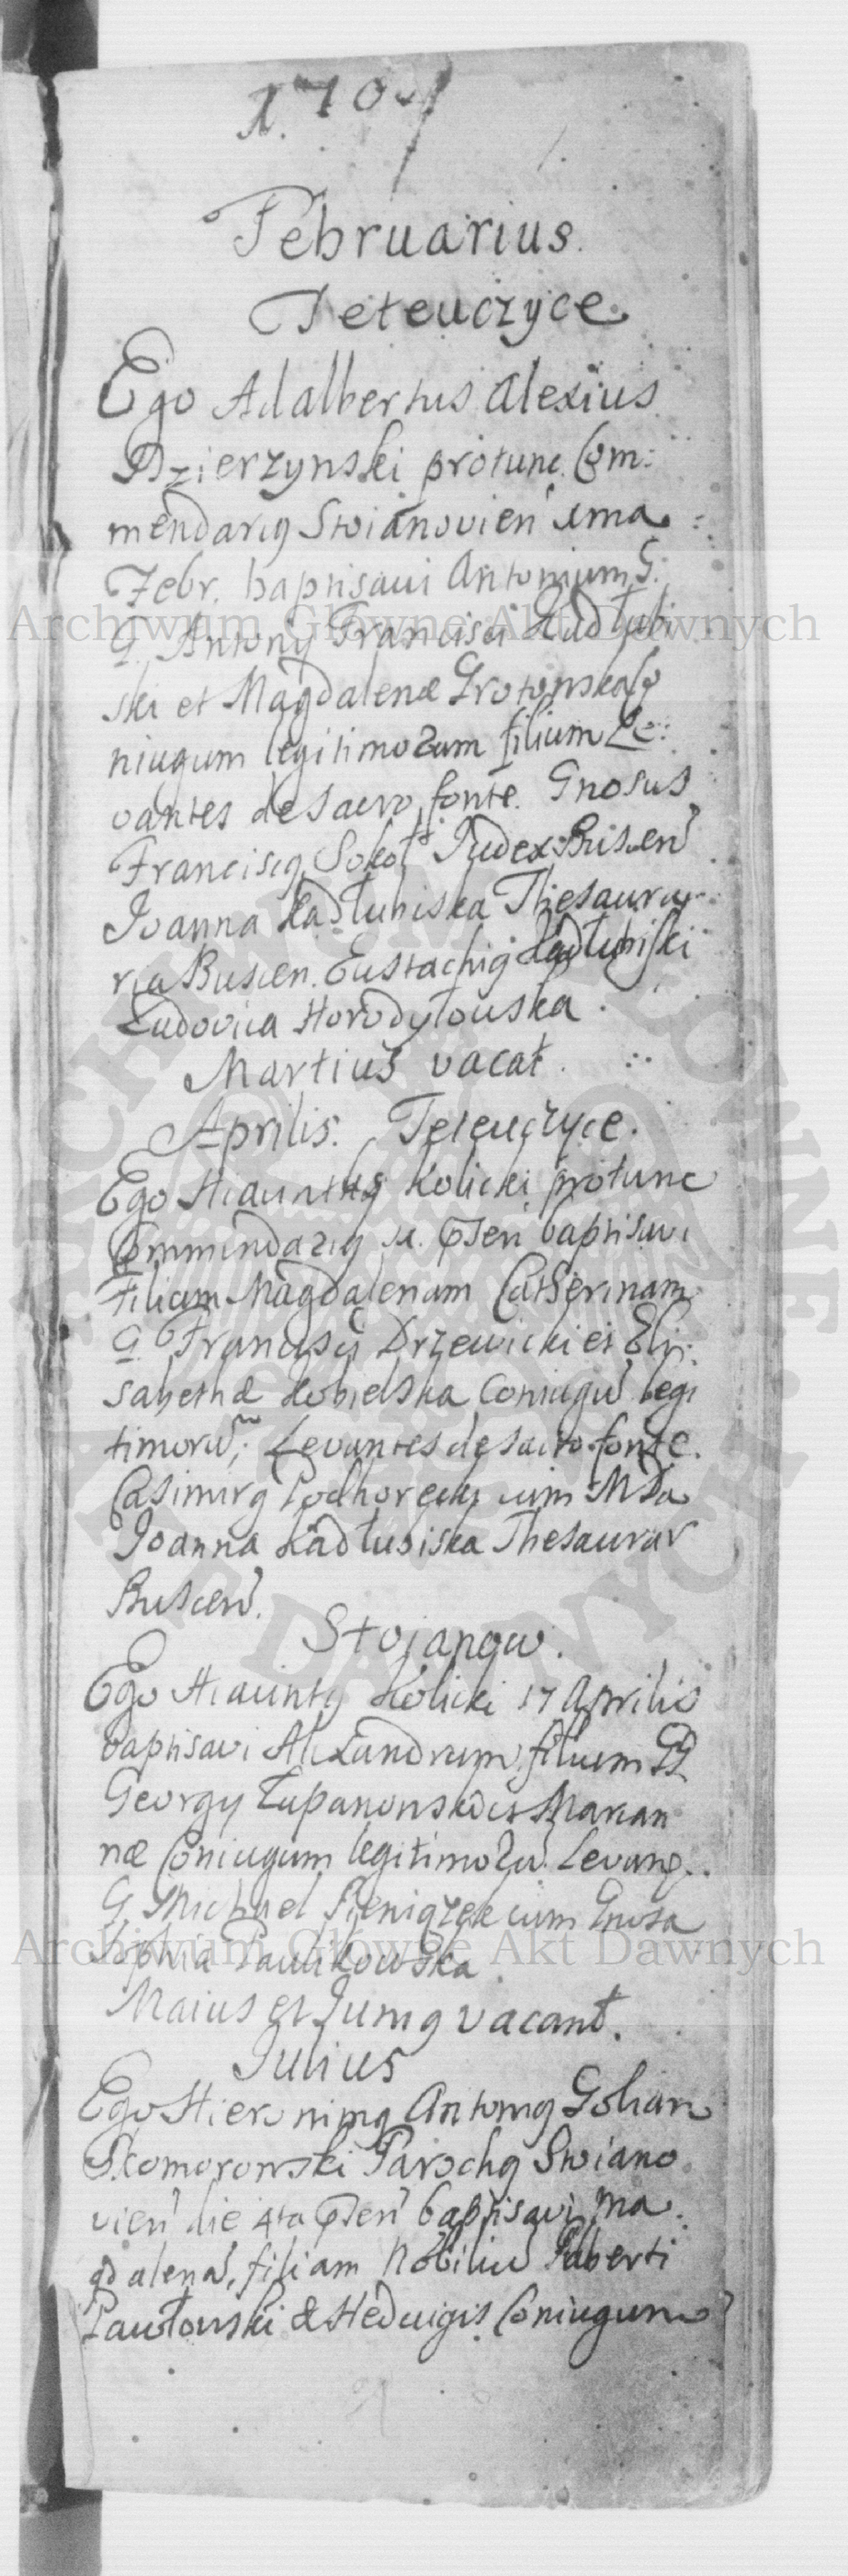 1704
Februarius.
Teteuczyce.
Ego Adalbertus Alexius
Dzierzynski protunc Com:
mendarig Stoianovien ima
Febr. baptisavi Antonium G.
G. Antonij Francisci Kadłubi
ski et Magdalenæ Grotowska Co
niugum legitimorum filium Le:
vantes de Sacro fonte. Gnosus
Franciscg Judex Buscen
Joanna Kadłubiska Thesaura
ria Buscen. Eustachig Kadłubiski
Ludovica Horodyłouska
Martius vacat.
Aprilis. Teteuczyce.
Ego Hiacinthg Kolicki protunc
Commendarig baptisavi
Filiam Magdalenam Catherinam
G. Francisci Drzewicki et Eli:
sabethæ Kobielska Coniugu legi
timoru; Levantes de sacro fonte.
Casimirg Podhorecki cum MDa
Joanna Kadłubiska Thesaurar
Buscen.
Stojanow.
Ego Hiacintg Kolicki 17 Aprilis
baptisavi Alexandrum filium GG
Georgy Łupanowski et Marian
næ Coniugum legitimoru Levang.
G. Michael Pieniązek cum Gnosa
Sophia Pawlikowska.
Maius et Junig vacant.
Julius
Ego Hieronimg Antonig Golian
Skomorowski Parochg Stoiano
vien die 4ta baptisavi Ma
gdalena, filiam Nobiliu Alberti
Pawłowski & Hedvigis Coniugum
Archiwum Główne Akt Dawnych
Archiwum Główne Akt Dawnych